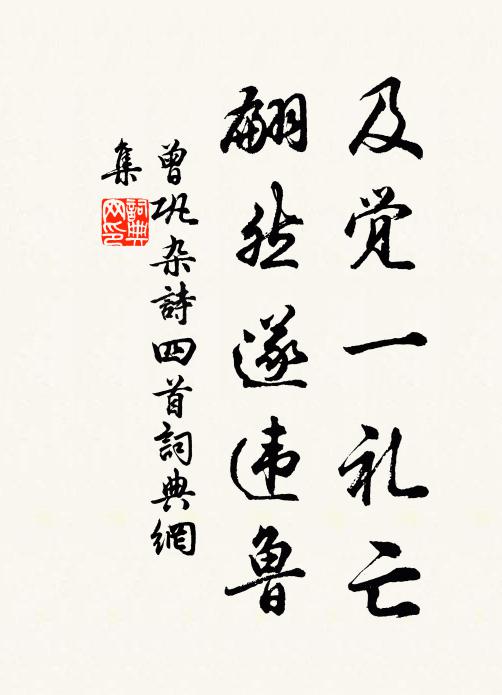 及觉一礼亡
翩然遂违鲁
曾巩杂詩四首詞典網
集
詞典网印